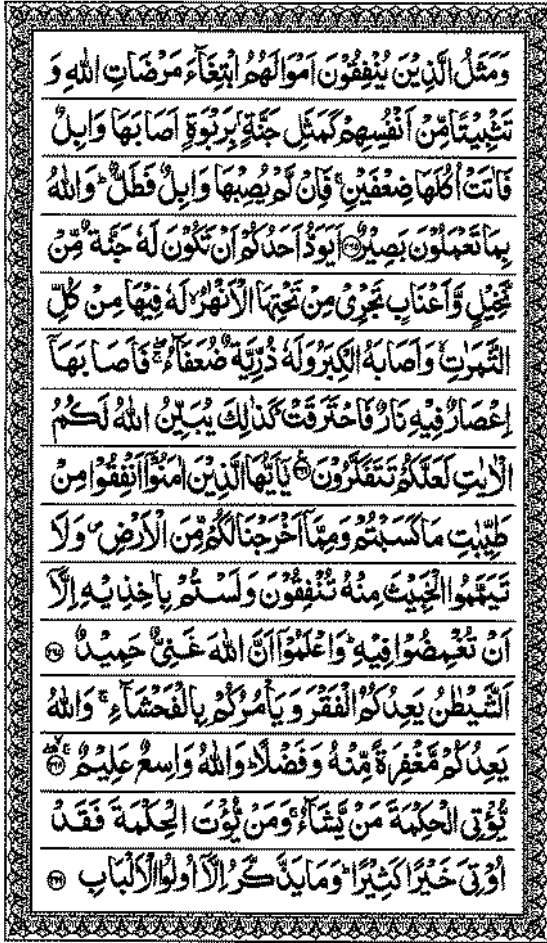 وَمَثَلُ الَّذِيْنَ يُنْفِقُوْنَ اَمْوَالَهُمُ ابْتِغَآءَ مَرْضَاتِ اللّٰهِ وَ
تَثْبِيْتًا مِّنْ اَنْفُسِهِمْ كَمَثَلِ جَنَّةٍۭ بِرَبْوَةٍ اَصَابَهَا وَابِلٌ
فَاٰتَتْ اُكُلَهَا ضِعْفَيْنِ ۚ فَاِنْ لَّمْ يُصِبْهَا وَابِلٌ فَطَلٌّ ؕ وَاللّٰهُ
بِمَا تَعْمَلُوْنَ بَصِيْرٌ ﴿۲۶۵﴾ اَيَوَدُّ اَحَدُكُمْ اَنْ تَكُوْنَ لَهٗ جَنَّةٌ مِّنْ
نَّخِيْلٍ وَّاَعْنَابٍ تَجْرِيْ مِنْ تَحْتِهَا الْاَنْهٰرُ ۙ لَهٗ فِيْهَا مِنْ كُلِّ
الثَّمَرٰتِ ۙ وَاَصَابَهُ الْكِبَرُ وَلَهٗ ذُرِّيَّةٌ ضُعَفَآءُ ۖۚ فَاَصَابَهَآ
اِعْصَارٌ فِيْهِ نَارٌ فَاحْتَرَقَتْ ؕ كَذٰلِكَ يُبَيِّنُ اللّٰهُ لَكُمُ
الْاٰيٰتِ لَعَلَّكُمْ تَتَفَكَّرُوْنَ ﴿۲۶۶﴾ يٰۤاَيُّهَا الَّذِيْنَ اٰمَنُوْۤا اَنْفِقُوْا مِنْ
طَيِّبٰتِ مَا كَسَبْتُمْ وَمِمَّاۤ اَخْرَجْنَا لَكُمْ مِّنَ الْاَرْضِ ۪ وَلَا
تَيَمَّمُوا الْخَبِيْثَ مِنْهُ تُنْفِقُوْنَ وَلَسْتُمْ بِاٰخِذِيْهِ اِلَّاۤ
اَنْ تُغْمِضُوْا فِيْهِ ؕ وَاعْلَمُوْۤا اَنَّ اللّٰهَ غَنِيٌّ حَمِيْدٌ ﴿۲۶۷﴾
اَلشَّيْطٰنُ يَعِدُكُمُ الْفَقْرَ وَيَاْمُرُكُمْ بِالْفَحْشَآءِ ۚ وَاللّٰهُ
يَعِدُكُمْ مَّغْفِرَةً مِّنْهُ وَفَضْلًا ؕ وَاللّٰهُ وَاسِعٌ عَلِيْمٌ ﴿۲۶۸﴾
يُّؤْتِي الْحِكْمَةَ مَنْ يَّشَآءُ ۚ وَمَنْ يُّؤْتَ الْحِكْمَةَ فَقَدْ
اُوْتِيَ خَيْرًا كَثِيْرًا ؕ وَمَا يَذَّكَّرُ اِلَّاۤ اُولُوا الْاَلْبَابِ ﴿۲۶۹﴾